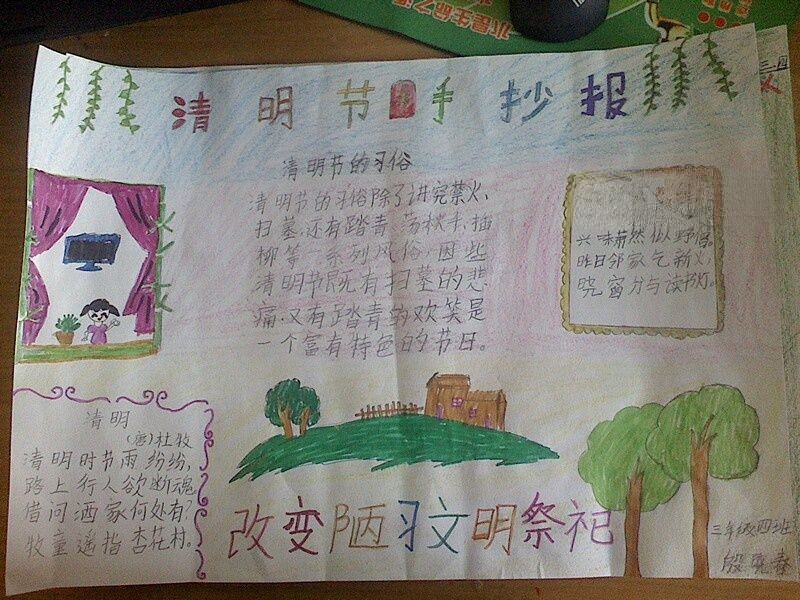 水是生命之源
清明节手抄报
清明节的习俗
清明节的习俗除了讲究禁火、
扫墓,还有踏青、荡秋千、插
柳等一系列风俗,因此
清明节既有扫墓的悲
痛,又有踏青的欢笑是
一个富有特色的节日。
兴味萧然似野僧。
昨日邻家乞新火,
晓窗分与读书灯。
清明
(唐)杜牧
清明时节雨纷纷,
路上行人欲断魂
借问酒家何处有?
牧童遥指杏花村。
改变陋习文明祭祀
三年级四班